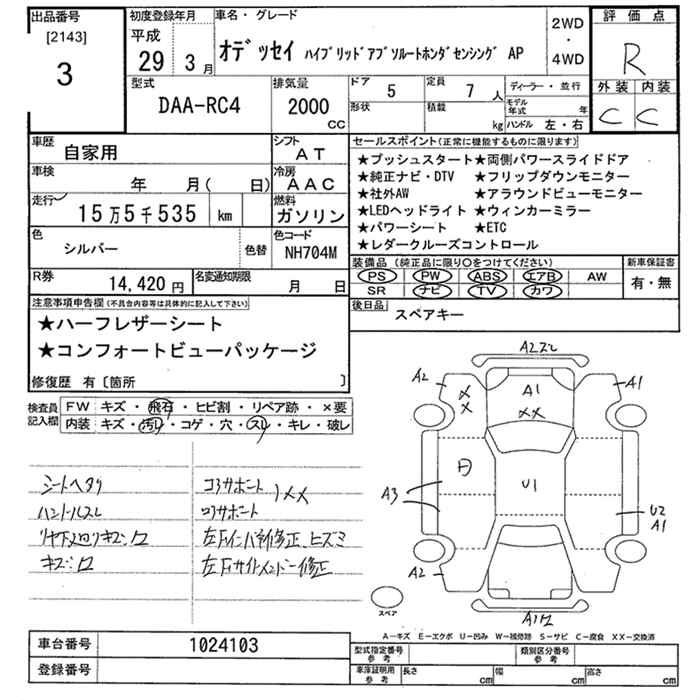 出品番号
[2143]
3
初度登録年月
平成
29年3月
車名・グレード
オデッセイ ハイブリッドアブソルートホンダセンシング AP
2WD
・
4WD
評価点
R
外装 内装
C C
型式
DAA-RC4
排気量
2000
CC
ドア 5
定員 7 人
形状
積載 kg
ディーラー・並行
モデル年式 年
ハンドル 左・右
車歴
自家用
シフト
AT
車検
年 月( 日)
冷房
AAC
走行
15万5千535 km
燃料
ガソリン
色
シルバー
色替
色コード
NH704M
R券
14,420円
名変通知期限
月 日
セールスポイント(正常に機能するものに限ります)
★プッシュスタート★両側パワースライドドア
★純正ナビ・DTV ★フリップダウンモニター
★社外AW ★アラウンドビューモニター
★LEDヘッドライト ★ウィンカーミラー
★パワーシート ★ETC
★レダークルーズコントロール
装備品(純正品に限り○をつけてください)
PS PW ABS エアB AW
SR ナビ TV カワ
新車保証書
有・無
後日品
スペアキー
注意事項申告欄(不具合内容等は具体的に記入して下さい)
★ハーフレザーシート
★コンフォートビューパッケージ
修復歴 有〔箇所 〕
検査員記入欄
FW キズ・飛石・ヒビ割・リペア跡・×要
内装 キズ・汚れ・コゲ・穴・スレ・キレ・破レ
シートヘタリ
ハンドルスレ
キズ
コアサポート
XX
ロアサポート
左Fインパネ修正、ヒズミ
左Fサイドメンバー修正
A2
A2
A1
XX
A1
XX
A3
U1
U2
A1
A2
スペア
A-キズ E-エクボ U-凹み W-補修跡 S-サビ C-腐食 XX-交換済
車台番号
1024103
登録番号
型式指定番号
参考
類別区分番号
参考
車庫証明用
参考
長さ cm
幅 cm
高さ cm